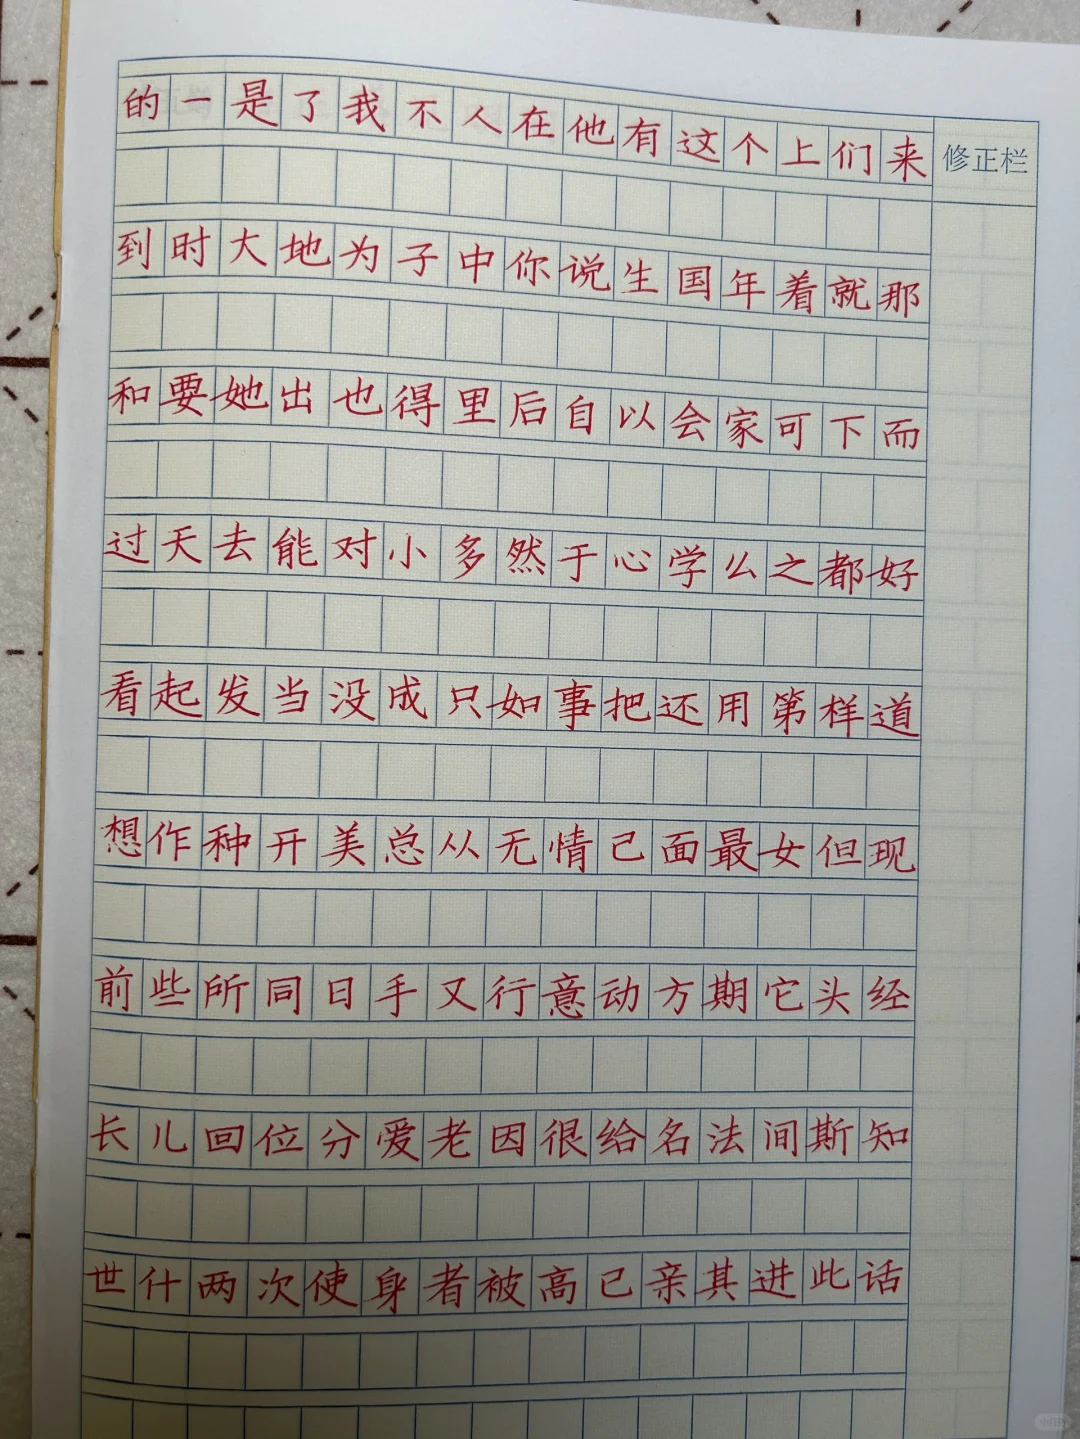 的一是了我不人在他有这个上们来
修正栏
到时大地为子中你说生国年着就那
和要她出也得里后自以会家可下而
过天去能对小多然于心学么之都好
看起发当没成只如事把还用第样道
想作种开美总从无情己面最女但现
前些所同日手又行意动方期它头经
长儿回位分爱老因很给名法间斯知
世什两次使身者被高已亲其进此话